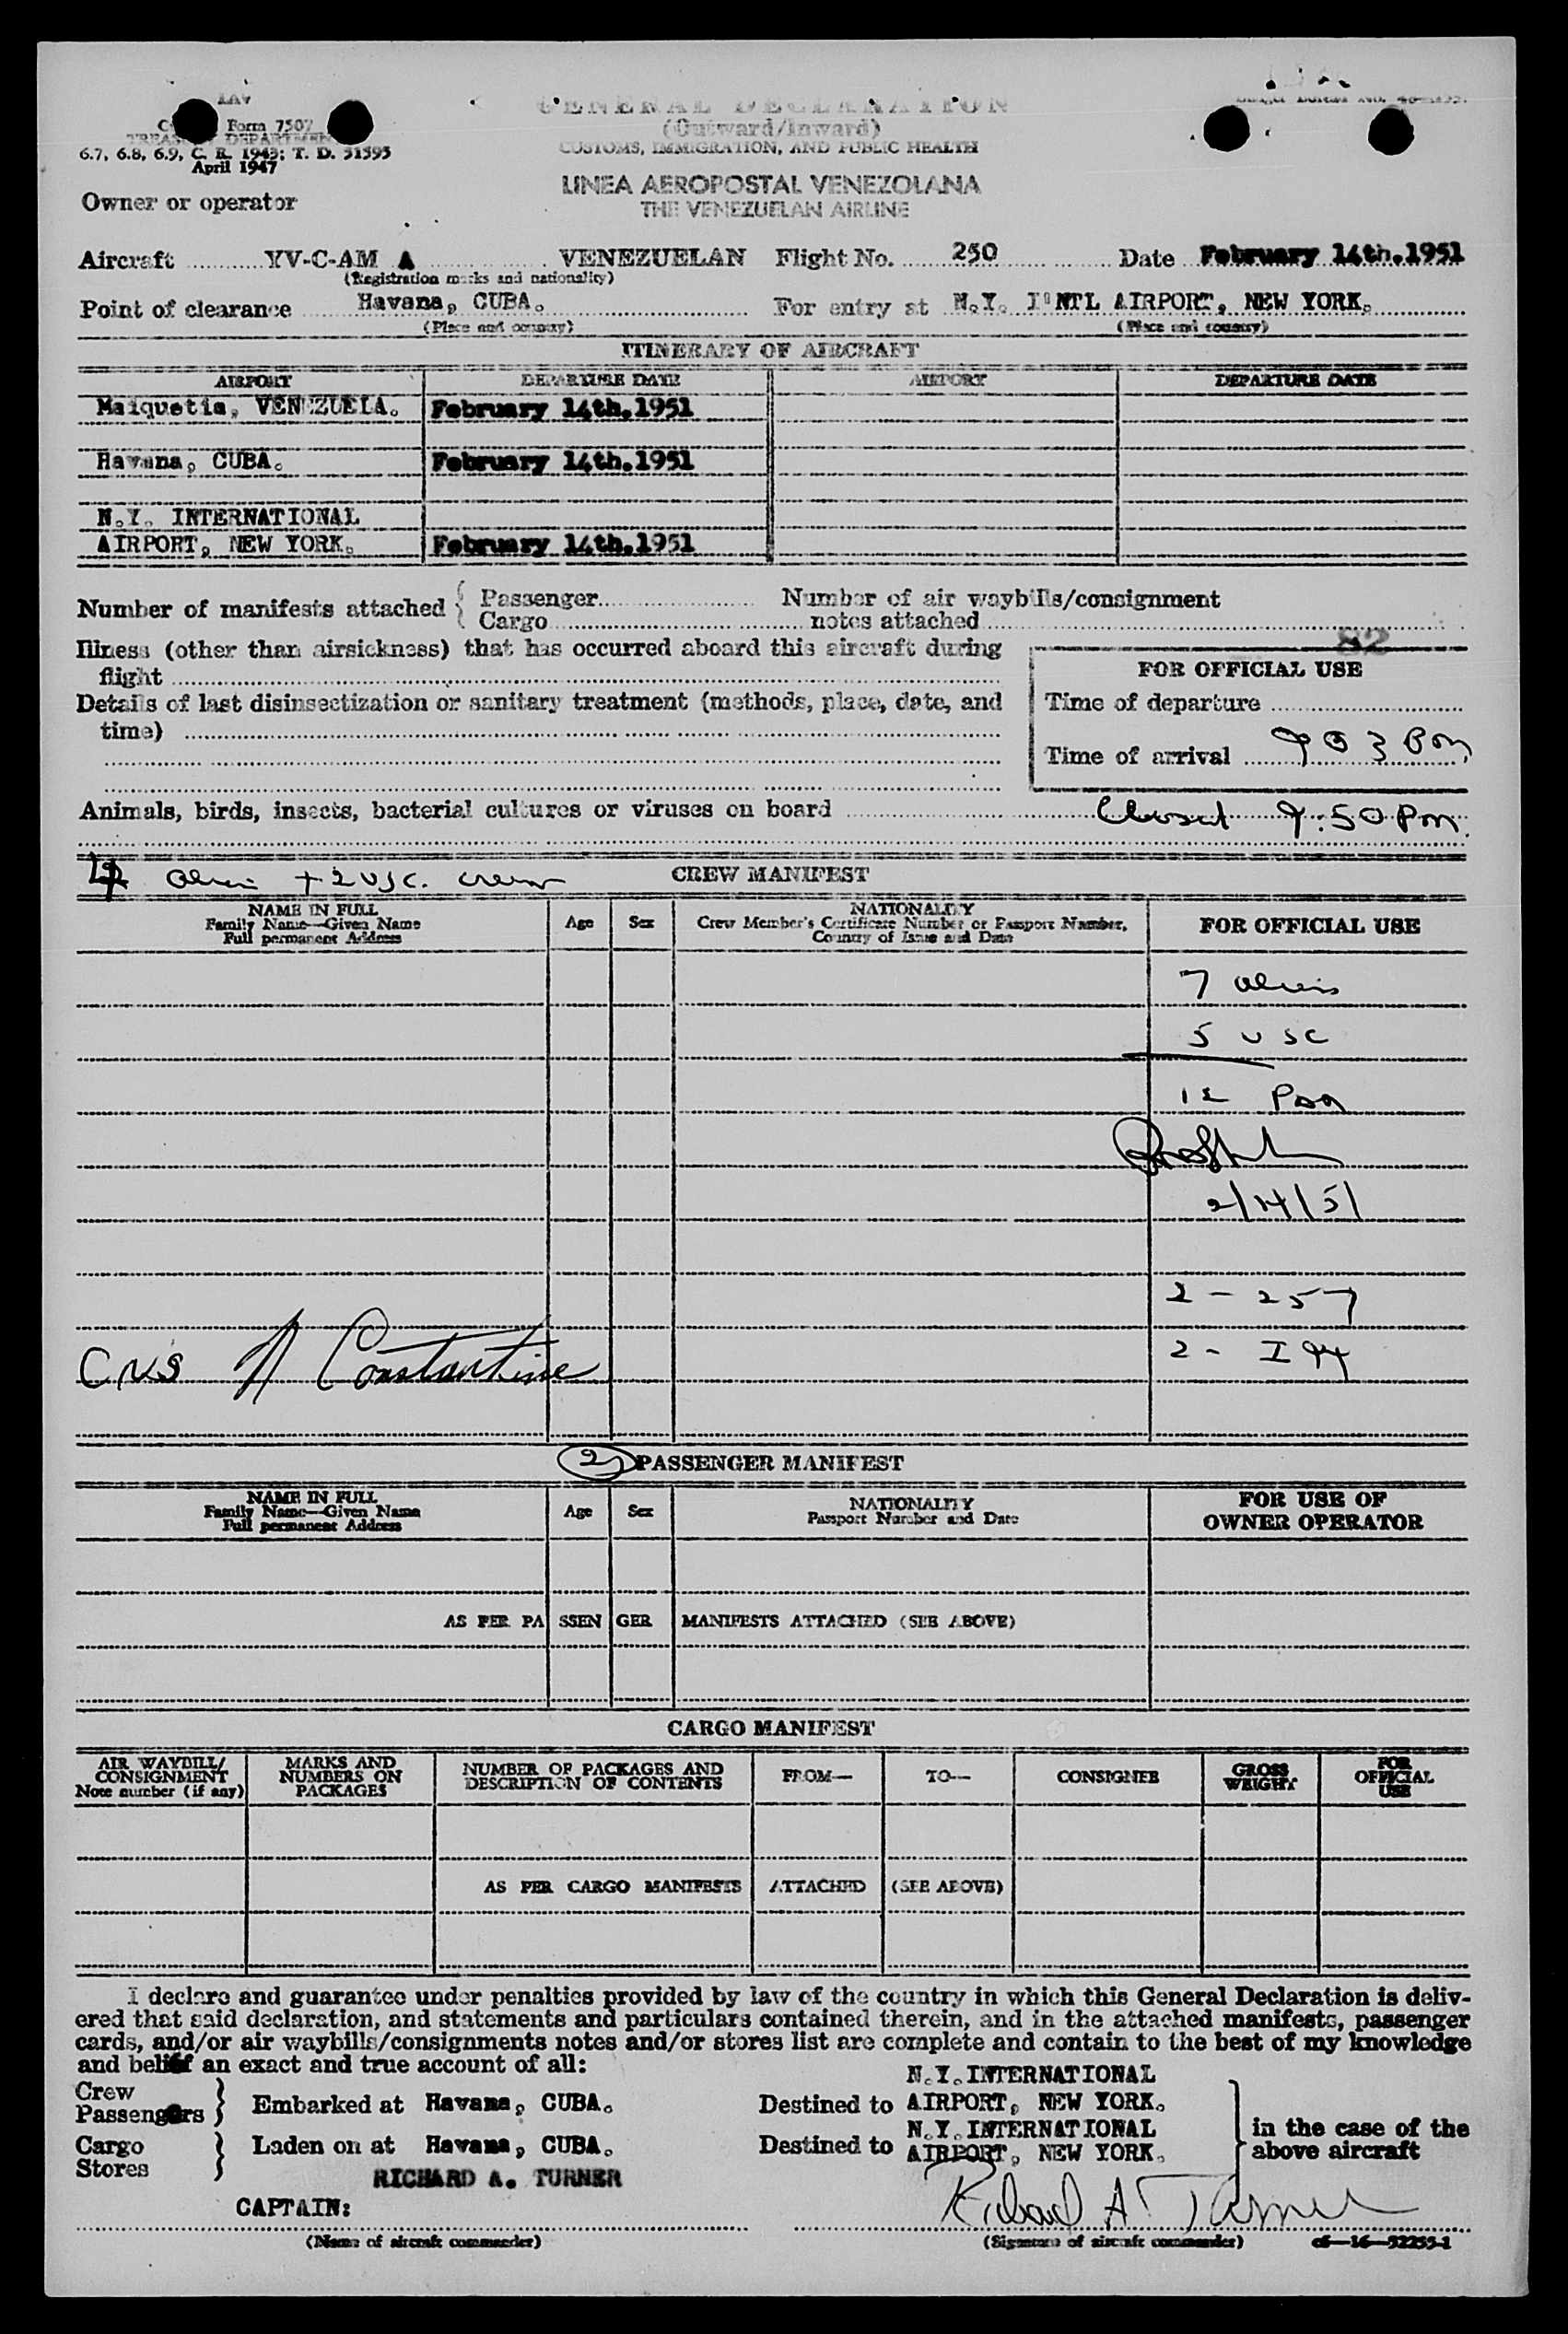 LAV
Form 7507
TREASURY DEPARTMENT
6.7, 6.8, 6.9, C. R. 1943; T. D. 51595
April 1947
GENERAL DECLARATION
(Outward/Inward)
CUSTOMS, IMMIGRATION, AND PUBLIC HEALTH
LINEA AEROPOSTAL VENEZOLANA
THE VENEZUELAN AIRLINE
Owner or operator
Aircraft YV-C-AM A VENEZUELAN Flight No. 250 Date February 14th.1951
(Registration marks and nationality)
Point of clearance Havana, CUBA. For entry at N.Y. I'NTL AIRPORT, NEW YORK.
(Place and country) (Place and country)
ITINERARY OF AIRCRAFT
AIRPORT DEPARTURE DATE AIRPORT DEPARTURE DATE
Maiquetia, VENEZUELA. February 14th.1951
Havana, CUBA. February 14th.1951
N.Y. INTERNATIONAL
AIRPORT, NEW YORK. February 14th.1951
Number of manifests attached { Passenger Number of air waybills/consignment
Cargo notes attached
82
Illness (other than airsickness) that has occurred aboard this aircraft during
flight
FOR OFFICIAL USE
Details of last disinsectization or sanitary treatment (methods, place, date, and
time)
Time of departure
Time of arrival 903 Pm
Animals, birds, insects, bacterial cultures or viruses on board Closed 9:50 Pm.
+ 2 USC. crew
CREW MANIFEST
NAME IN FULL
Family Name—Given Name
Full permanent Address
Age Sex
NATIONALITY
Crew Member's Certificate Number or Passport Number,
Country of Issue and Date
FOR OFFICIAL USE
7 aliens
5 USC
12 Pax
2/14/51
2 - 257
2 - I 94
N Constantine
2 PASSENGER MANIFEST
NAME IN FULL
Family Name—Given Name
Full permanent Address
Age Sex
NATIONALITY
Passport Number and Date
FOR USE OF
OWNER OPERATOR
AS PER PASSENGER MANIFESTS ATTACHED (SEE ABOVE)
CARGO MANIFEST
AIR WAYBILL/
CONSIGNMENT
Note number (if any)
MARKS AND
NUMBERS ON
PACKAGES
NUMBER OF PACKAGES AND
DESCRIPTION OF CONTENTS
FROM— TO— CONSIGNEE
GROSS
WEIGHT
FOR
OFFICIAL
USE
AS PER CARGO MANIFESTS ATTACHED (SEE ABOVE)
I declare and guarantee under penalties provided by law of the country in which this General Declaration is deliv-
ered that said declaration, and statements and particulars contained therein, and in the attached manifests, passenger
cards, and/or air waybills/consignments notes and/or stores list are complete and contain to the best of my knowledge
and belief an exact and true account of all:
N.Y.INTERNATIONAL
Crew
Passengers } Embarked at Havana, CUBA. Destined to AIRPORT, NEW YORK.
N.Y.INTERNATIONAL
Cargo
Stores } Laden on at Havana, CUBA. Destined to AIRPORT, NEW YORK.
in the case of the
above aircraft
RICHARD A. TURNER
CAPTAIN: Richard A. Turner
(Name of aircraft commander) (Signature of aircraft commander) c6—16—52255-1